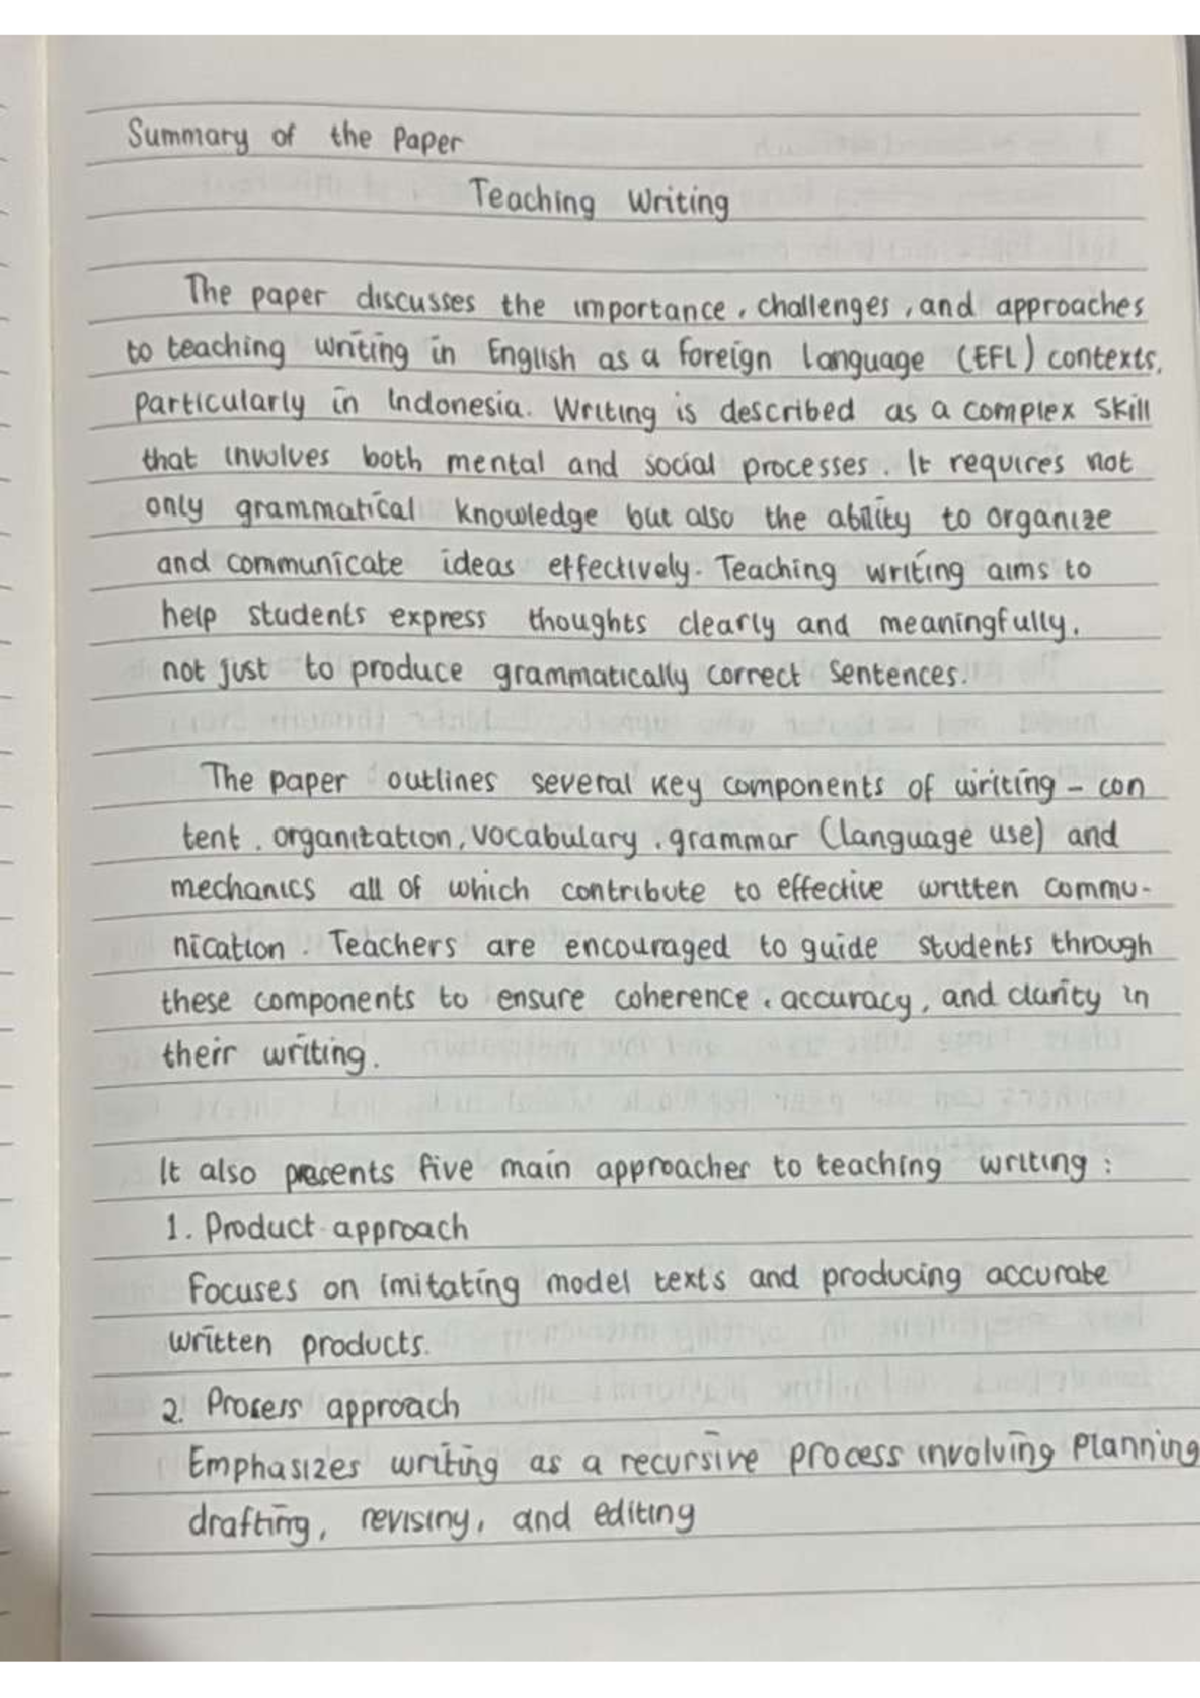 Summary of the Paper
Teaching Writing
The paper discusses the importance, challenges, and approaches
to teaching writing in English as a foreign language (EFL) contexts,
particularly in Indonesia. Writing is described as a complex skill
that involves both mental and social processes. It requires not
only grammatical knowledge but also the ability to organize
and communicate ideas effectively. Teaching writing aims to
help students express thoughts clearly and meaningfully,
not just to produce grammatically correct sentences.
The paper outlines several key components of writing - con
tent, organization, vocabulary, grammar (language use) and
mechanics all of which contribute to effective written commu-
nication. Teachers are encouraged to guide students through
these components to ensure coherence, accuracy, and clarity in
their writing.
It also presents five main approacher to teaching writing :
1. Product approach
Focuses on imitating model texts and producing accurate
written products.
2. Process approach
Emphasizes writing as a recursive process involving planning
drafting, revising, and editing